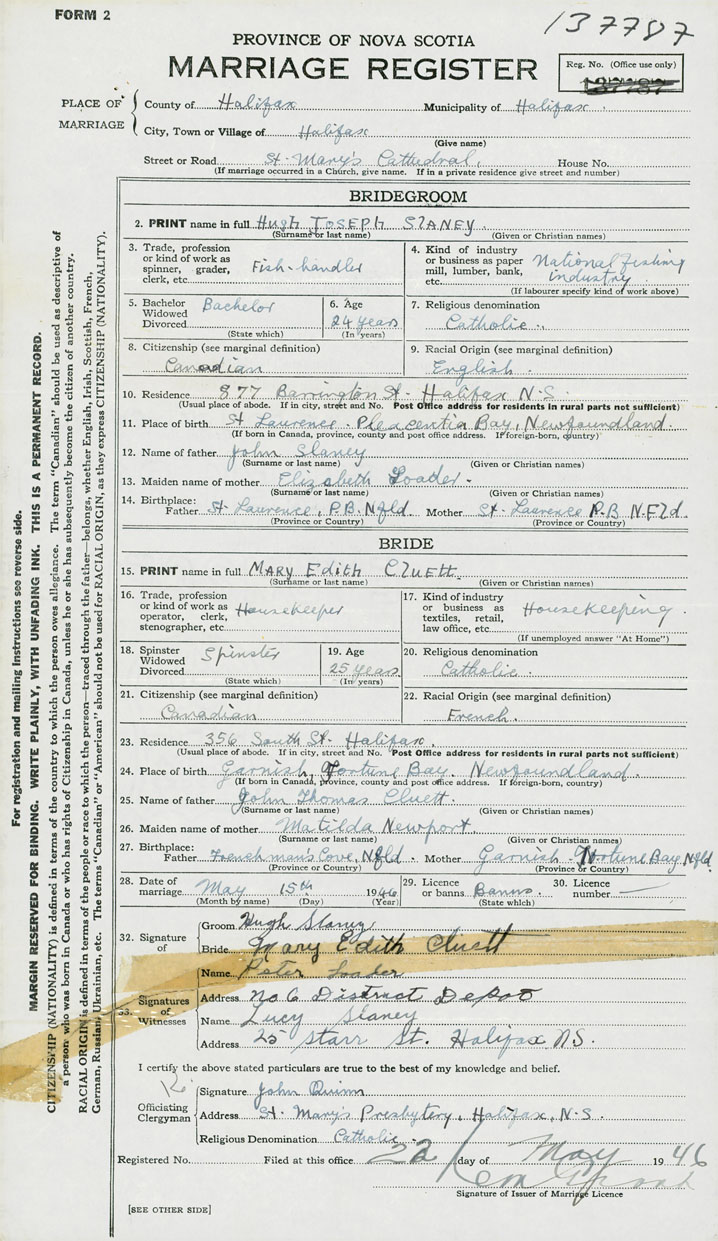 FORM 2
137787
PROVINCE OF NOVA SCOTIA
MARRIAGE REGISTER
Reg. No. (Office use only)
137787
PLACE OF MARRIAGE
County of Halifax Municipality of Halifax
City, Town or Village of Halifax
(Give name)
Street or Road St. Mary's Cathedral, House No.
(If marriage occurred in a Church, give name. If in a private residence give street and number)
BRIDEGROOM
2. PRINT name in full Hugh Joseph Slaney
(Surname or last name) (Given or Christian names)
3. Trade, profession or kind of work as spinner, grader, clerk, etc. Fish-handler
4. Kind of industry or business as paper mill, lumber, bank, etc. National fishing industry
(If labourer specify kind of work above)
5. Bachelor Widowed Divorced Bachelor
(State which)
6. Age 24 years
(In years)
7. Religious denomination
Catholic
8. Citizenship (see marginal definition)
Canadian
9. Racial Origin (see marginal definition)
English
10. Residence 877 Barrington St. Halifax N.S.
(Usual place of abode. If in city, street and No. Post Office address for residents in rural parts not sufficient)
11. Place of birth St Laurence. Placentia Bay, Newfoundland
(If born in Canada, province, county and post office address. If foreign-born, country)
12. Name of father John Slaney
(Surname or last name) (Given or Christian names)
13. Maiden name of mother Elizabeth Loader.
(Surname or last name) (Given or Christian names)
14. Birthplace:
Father St. Laurence, P.B. Nfld. Mother St. Laurence P.B N.Fld.
(Province or Country) (Province or Country)
BRIDE
15. PRINT name in full Mary Edith Cluett
(Surname or last name) (Given or Christian names)
16. Trade, profession or kind of work as operator, clerk, stenographer, etc. Housekeeper
17. Kind of industry or business as textiles, retail, law office, etc. Housekeeping.
(If unemployed answer "At Home")
18. Spinster Widowed Divorced Spinster
(State which)
19. Age 25 years
(In years)
20. Religious denomination
Catholic
21. Citizenship (see marginal definition)
Canadian
22. Racial Origin (see marginal definition)
French.
23. Residence 356 South St. Halifax.
(Usual place of abode. If in city, street and No. Post Office address for residents in rural parts not sufficient)
24. Place of birth Garnish, Fortune Bay. Newfoundland.
(If born in Canada, province, county and post office address. If foreign-born, country)
25. Name of father John Thomas Cluett.
(Surname or last name) (Given or Christian names)
26. Maiden name of mother Matilda Newport.
(Surname or last name) (Given or Christian names)
27. Birthplace:
Father Frenchman's Cove, Nfld. Mother Garnish. Fortune Bay, Nfld.
(Province or Country) (Province or Country)
28. Date of marriage May 15th 1946
(Month by name) (Day) (Year)
29. Licence or banns Banns.
(State which)
30. Licence number
32. Signature of
Groom Hugh Slaney
Bride Mary Edith Cluett
33. Signatures of Witnesses
Name Peter Loader
Address No 6 District Depot
Name Lucy Slaney
Address 25 Starr St. Halifax NS.
I certify the above stated particulars are true to the best of my knowledge and belief.
Officiating Clergyman
Signature John Quinn
Address St. Mary's Presbytery, Halifax, N-S.
Religious Denomination Catholic
Registered No. Filed at this office 22 day of May 1946
Signature of Issuer of Marriage Licence
[SEE OTHER SIDE]
For registration and mailing instructions see reverse side.
MARGIN RESERVED FOR BINDING. WRITE PLAINLY, WITH UNFADING INK. THIS IS A PERMANENT RECORD.
CITIZENSHIP (NATIONALITY) is defined in terms of the country to which the person owes allegiance. The term "Canadian" should be used as descriptive of
a person who was born in Canada or who has rights of Citizenship in Canada, unless he or she has subsequently become the citizen of another country.
RACIAL ORIGIN is defined in terms of the people or race to which the person—traced through the father—belongs, whether English, Irish, Scottish, French,
German, Russian, Ukrainian, etc. The terms "Canadian" or "American" should not be used for RACIAL ORIGIN, as they express CITIZENSHIP (NATIONALITY).